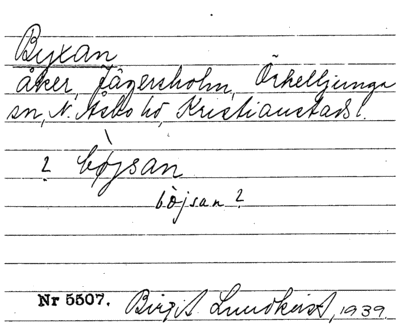 Byxan
åker, Jägersholm, Örkelljunga
sn, N. Åsbo hd, Kristianstads l.
? bòjsan
bòjsan ?
Nr 5507. Birgit Lundkvist, 1939.